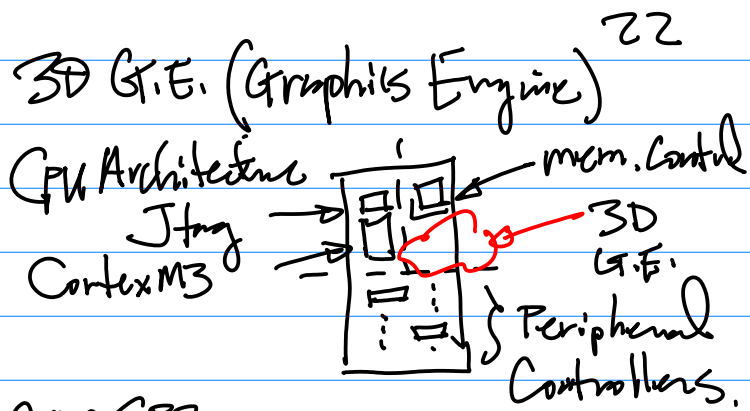 22
3D G.E. (Graphics Engine)
CPU Architecture
mem. Control
Jtag
3D
G.E.
CortexM3
Peripheral
Controllers.